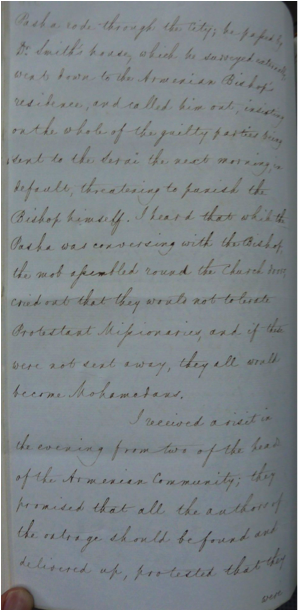 Pasha rode through the City; he passed by
Dr. Smith's house, which he surveyed externally
went down to the Armenian Bishop's
residence, and called him out, insisting
on the whole of the guilty parties being
sent to the Serai the next morning, in
default, threatening to punish the
Bishop himself. I heard that while the
Pasha was conversing with the Bishop
the mob assembled round the Church door,
cried out that they would not tolerate
Protestant Missionaries, and if these
were not sent away, they all would
become Mohamedans.
I received a visit in
the evening from two of the head
of the Armenian Community; they
promised that all the authors of
the outrage should be found and
delivered up, protested that they
were